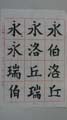 永永永
伯洛永
洛丘瑞
丘瑞伯